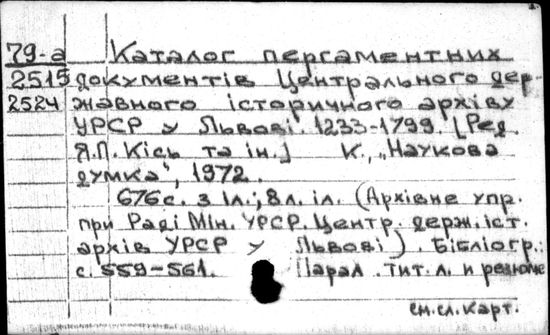 79-а Каталог пергаментних
2515 документів Центрального дер-
2524 жавного історичного архіву
УРСР у Львові. 1233-1799. [Ред.
Я.П. Кісь та ін.] К., „Наукова
думка", 1972.
676 с. з іл.; 8 л. іл. (Архівне упр.
при Раді Мін. УРСР. Центр. держ. іст.
архів УРСР у Львові). Бібліогр.:
с. 559-561. Парал. тит. л. и резюме
см. сл. карт.